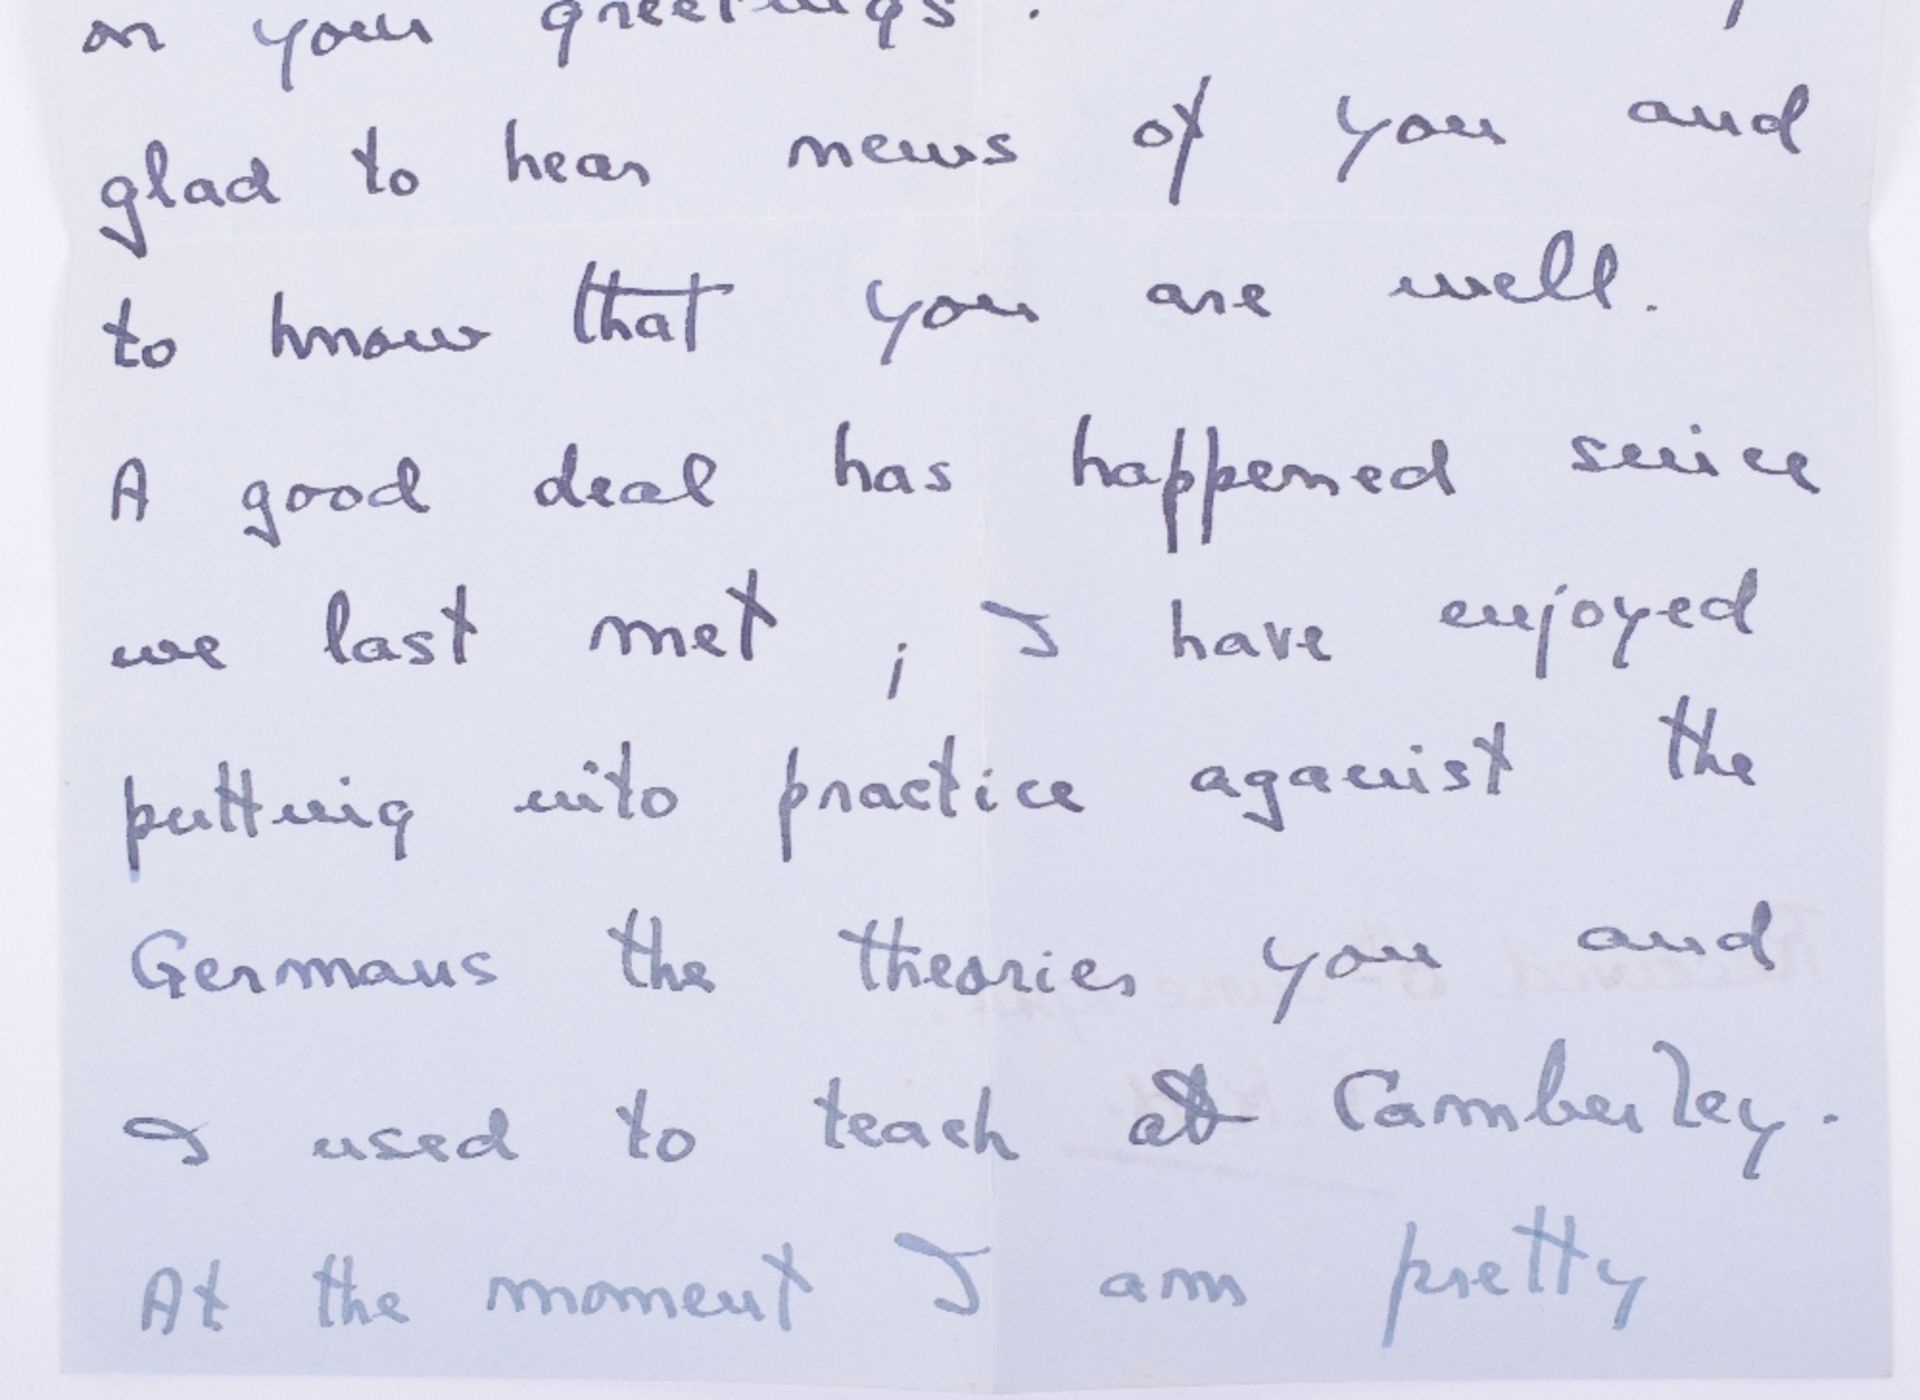 on your greetings.
glad to hear news of you and
to know that you are well.
A good deal has happened since
we last met; I have enjoyed
putting into practice against the
Germans the theories you and
I used to teach at Camberley.
At the moment I am pretty